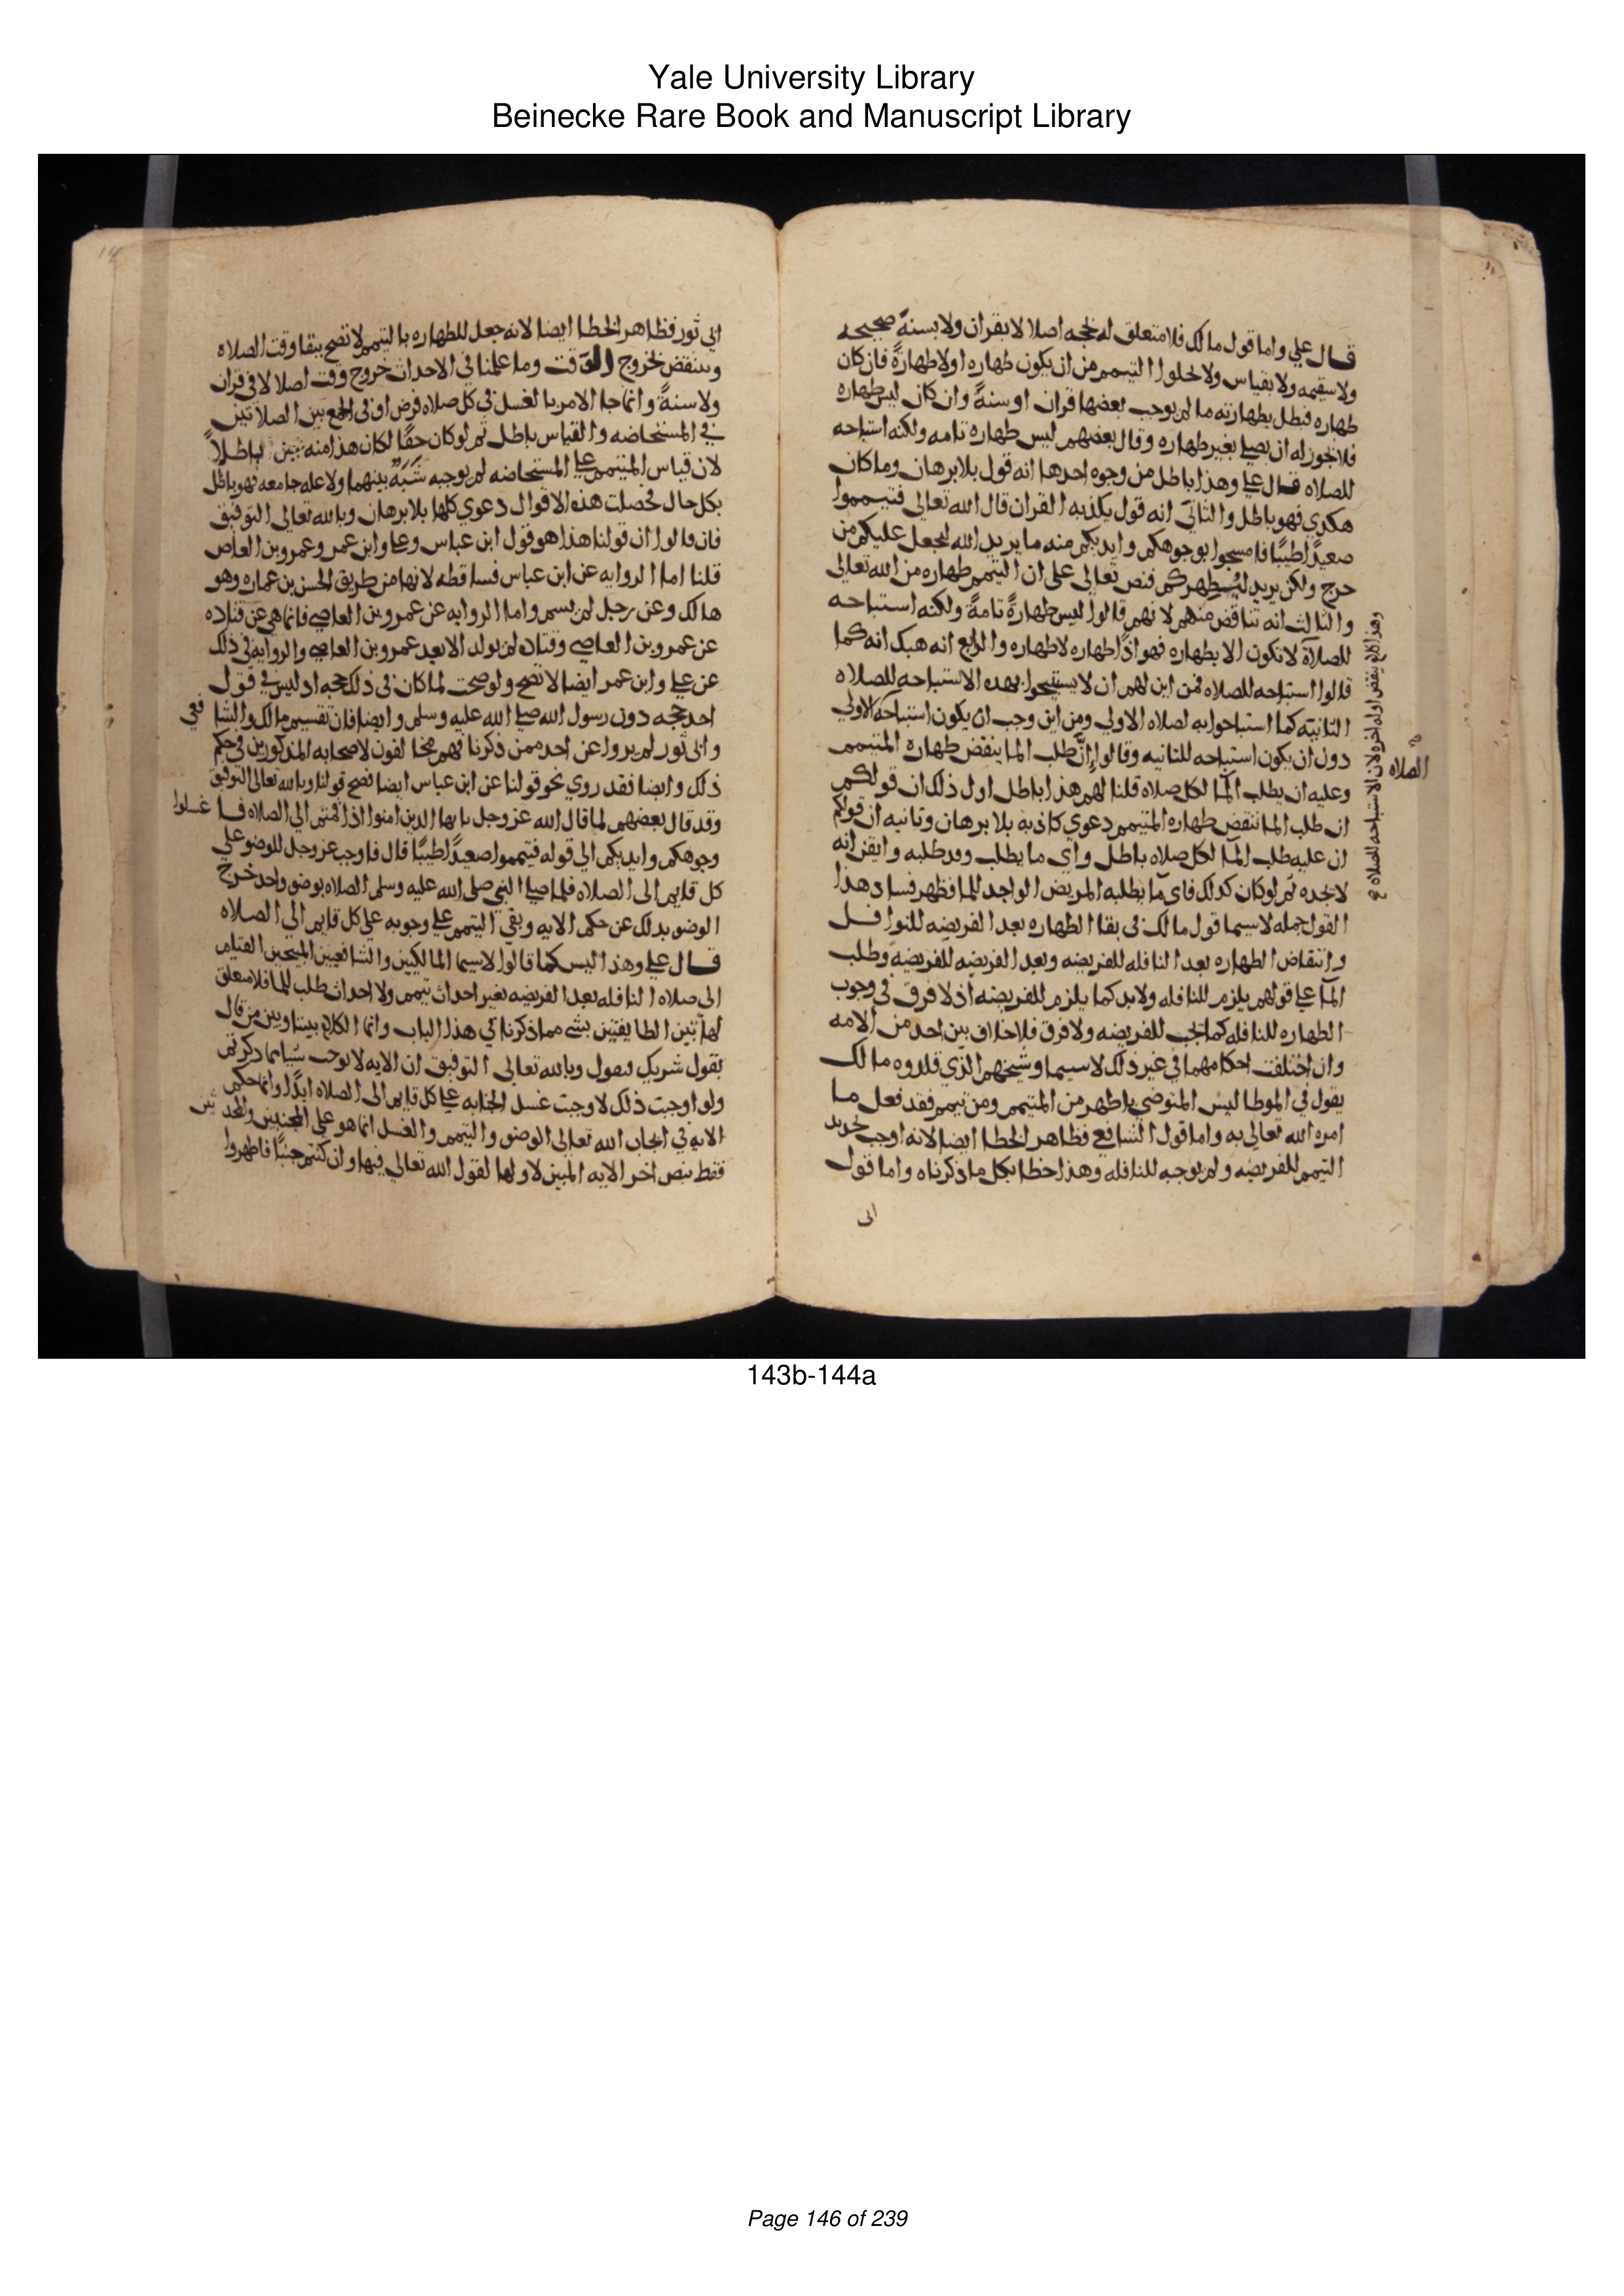 Yale University Library
Beinecke Rare Book and Manuscript Library
قال علي واما قول مالك فلا متعلق له بحجه اصلا لا بقران ولا بسنة صحيحه
ولا سقيمه ولا بقياس ولا يخلوا التيمم من ان يكون طهاره او لا طهارة فان كان
طهاره فيصلي بطهارته ما لم يوجب بعضها قران او سنة وان كان ليس طهاره
فلا يجوز له ان يصلي بغير طهاره وقال بعضهم ليس طهاره تامه ولكنه استباحه
للصلاه قال علي وهذا باطل من وجوه احدها انه قول بلا برهان وما كان
هكذي فهو باطل والثاني انه قول يكذبه القران قال الله تعالى فتيمموا
صعيدًا طيبًا فامسحوا بوجوهكم وايديكم منه ما يريد الله ليجعل عليكم من
حرج ولكن يريد ليطهركم فنص تعالى على ان التيمم طهاره من الله تعالى
والثالث انه تناقض منهم لانهم قالوا ليس طهارةً تامةً ولكنه استباحه
للصلاة لا تكون الا بطهاره فهو اذًا طهاره لا طهاره والرابع انه هبك انه كما
قالوا استباحه للصلاه فمن اين لهم ان لا يستبيحوا بهذه الاستباحه للصلاه
الثانيه كما استباحوا به لصلاه الاولي ومن اين وجب ان يكون استباحه الاولي
دون ان يكون استباحه للثانيه وقالوا إنَّ طلب الما ينقض طهاره المتيمم
وعليه ان يطلب الما لكل صلاه قلنا لهم هذا باطل اول ذلك ان قولكم
ان طلب الما تنقض طهاره المتيمم دعوي كاذبه بلا برهان وثانيه ان قولكم
ان عليه طلب الما لكل صلاه باطل واي ما يطلب وقد طلبه وايقن انه
لا يجده ثم لو كان كذلك فاي ما يطلبه المريض الواجد للما فظهر فساد هذا
القول جمله لا سيما قول مالك في بقا الطهاره بعد الفريضه للنوافل
وانتقاض الطهاره بعد النافله للفريضه وبعد الفريضه للفريضه وطلب
الما علي قولهم يلزم للنافله ولا بد كما يلزم للفريضه اذ لا فرق في وجوب
الطهاره للنافله كما تجب للفريضه ولا فرق فلا خلاف بين احد من الامه
وان اختلفت احكامهما في غير ذلك لا سيما وشيخهم الذي قلدوه مالك
يقول في الموطا ليس المتوضي باطهر من المتيمم ومن تيمم فقد فعل ما
امره الله تعالى به واما قول الشافعي فظاهر الخطا ايضا لانه اوجب تجديد
التيمم للفريضه ولم يوجبه للنافله وهذا خطا بكل ما ذكرناه واما قول
ابى
الصلاه
وهذا كلام ينقض اوله اخره لان الاستباحه للصلاه
ابي ثور فظاهر الخطا ايضا لانه جعل للطهاره بالتيمم لا تصح ببقا وقت الصلاه
وينتقض بخروج الوقت وما علمنا في الاحداث خروج وقت اصلا لا في قران
ولا سنةً وانما جا الامر بالغسل في كل صلاه فرض او في الجمع بين الصلاتين
في المستحاضه والقياس باطل ثم لو كان حقًا لكان هذا منه عين الباطلً
لان قياس المتيمم علي المستحاضه لم يوجبه شَبَهٌ بينهما ولا عله جامعه فهو باطل
بكل حال فحصلت هذه الاقوال دعوي كلها بلا برهان وبالله تعالى التوفيق
فان قالوا ان قولنا هذا هو قول ابن عباس وعلي وابن عمر وعمرو بن العاص
قلنا اما الروايه عن ابن عباس فساقطه لانها من طريق الحسن بن عماره وهو
هالك وعن رجل لم يسم واما الروايه عن عمرو بن العاصي فانما هي عن قتاده
عن عمرو بن العاصي وقتاده لم يولد الا بعد عمرو بن العاصي والروايه في ذلك
عن علي وابن عمر ايضا لا تصح ولو صحت لما كان في ذلك حجه اذ ليس في قول
احد حجه دون رسول الله صلي الله عليه وسلم وايضا فان تقسيم مالك والشافعي
وابي ثور لم يروا عن احد ممن ذكرنا فهم مخالفون لاصحابه المذكورين في حكم
ذلك وايضا فقد روي نحو قولنا عن ابن عباس ايضا فصح قولنا وبالله تعالى التوفيق
وقد قال بعضهم لما قال الله عز وجل يا ايها الذين امنوا اذا قمتم الي الصلاه فاغسلوا
وجوهكم وايديكم الي قوله فتيمموا صعيدًا طيبًا قال فاوجب عز وجل للوضو علي
كل قايم الى الصلاه فلما صلي النبي صلى الله عليه وسلم الصلاه بوضو واحد خرج
الوضو بذلك عن حكم الايه وبقي التيمم علي وجوبه علي كل قايم الي الصلاه
قال علي وهذا ليس كما قالوا لا سيما المالكيين والشافعيين المبيحين القيام
الى صلاه النافله بعد الفريضه بغير احداث تيمم ولا احداث طلب للما فلا متعلق
لهاتين الطايفتين بشي مما ذكرنا في هذا الباب وانما الكلام بيننا وبين من قال
بقول شريك فنقول وبالله تعالى التوفيق ان الايه لا توجب شيا مما ذكرتم
ولو اوجبت ذلك لاوجبت غسل الجنابه علي كل قايم الى الصلاه ابدًا وانما حكم
الايه في ايجاب الله تعالى الوضو والتيمم والغسل انما هو على المجنبين والمحدثين
فقط بنص اخر الايه المبين لاولها لقول الله تعالى فيها وان كنتم جنبًا فاطهروا
143b-144a
Page 146 of 239